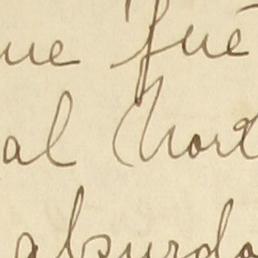 ue fué
al Nort
absurdo